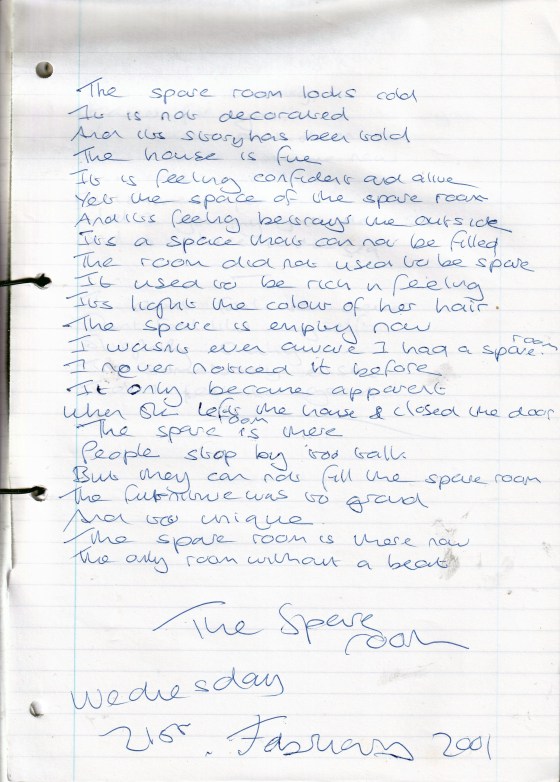 The spare room looks cold
It is not decorated
And its story has been told
The house is fine
It is feeling confident and alive
Yet the space of the spare room
And its feeling betrays the outside
Its a space that can not be filled
The room did not used to be spare
It used to be rich n feeling
Its light the colour of her hair.
The spare is empty now
I wasnt even aware I had a spare room
I never noticed it before
It only became apparent
When she left the house & closed the door
The spare room is there
People stop by to talk
But they can not fill the spare room
The furniture was to grand
And to unique.
The spare room is there now
The only room without a beat
The Spare
room
Wednesday
21st. February 2001